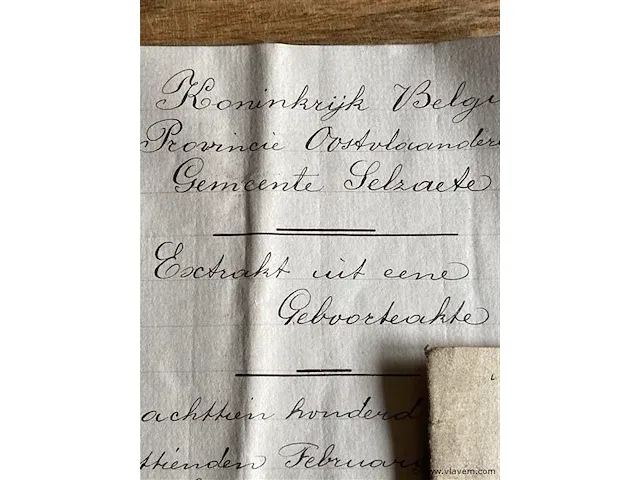 Koninkrijk Belgi
Provincie Oostvlaandere
Gemeente Selzaete
Extrakt uit eene
Geboorteakte
achttien honderd
ttienden Februari
www.vlavem.com